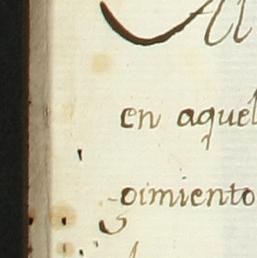 Al
en aquel
gimiento